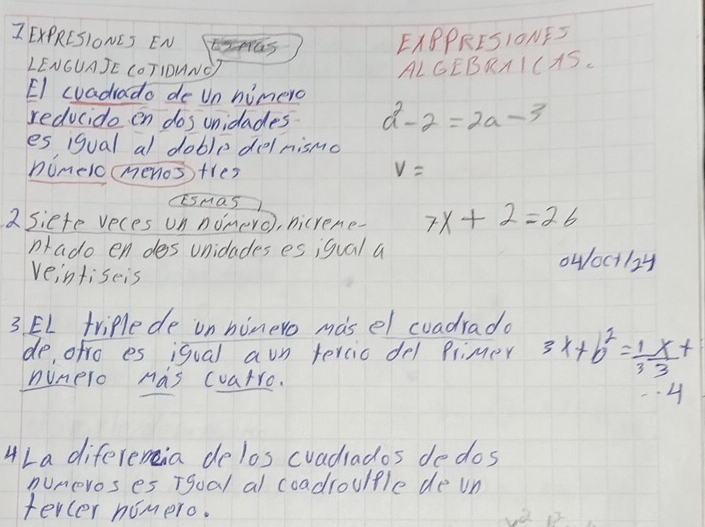 1 EXPRESIONES EN
LENGUAJE COTIDIANO
EXPPRESIONES
ALGEBRAICAS.
El cuadrado de un número
reducido en dos unidades
es igual al doble del mismo
número menos tres
a²-2=2a-3
V=
ESMAS
2 Siete veces un número, nicreme-
ntado en dos unidades es igual a
veintiseis
7x+2=26
04/oct/24
3 EL triple de un número más el cuadrado
de otro es igual a un tercio del Primer
número más cuatro.
3x+b²=1/3 x/3 +
--4
4 La diferencia de los cuadrados de dos
numeros es Igual al
de un
tercer número.